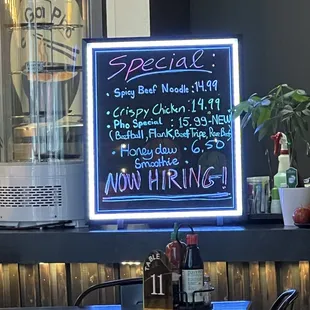 Ga Pho
Special :
· Spicy Beef Noodle : 14.99
· Crispy Chicken : 14.99
· Pho Special : 15.99-NEW
(Beefball, Flank, Beef Tripe, Rare Beef)
· Honeydew · 6.50
Smoothie
NOW HIRING!
TABLE
11